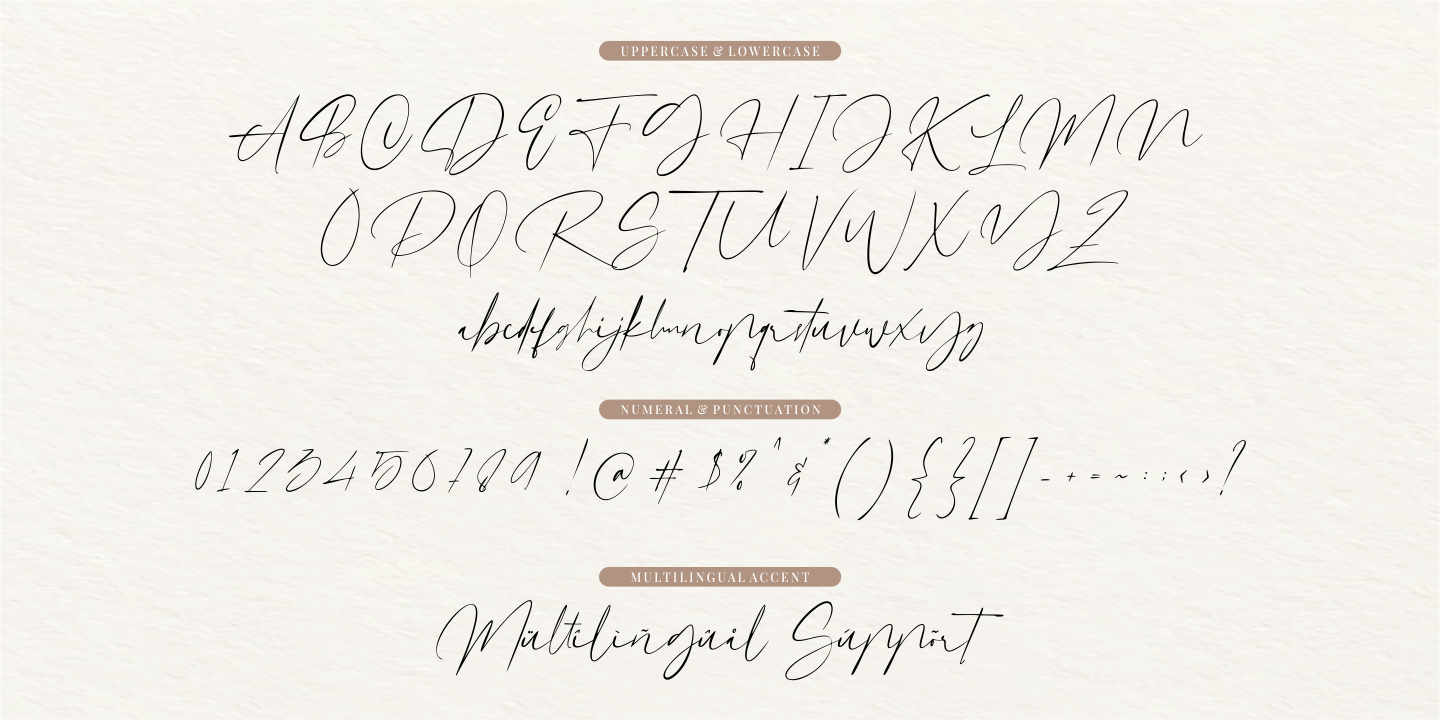 UPPERCASE & LOWERCASE
A B C D E F G H I J K L M N
O P Q R S T U V W X Y Z
abcdefghijklmnopqrstuvwxyz
NUMERAL & PUNCTUATION
0 1 2 3 4 5 6 7 8 9 ! @ # $ % ^ & * ( ) { } [ ] - + = ~ : ; < > ?
MULTILINGUAL ACCENT
Mültíliñgúål Súppõrt